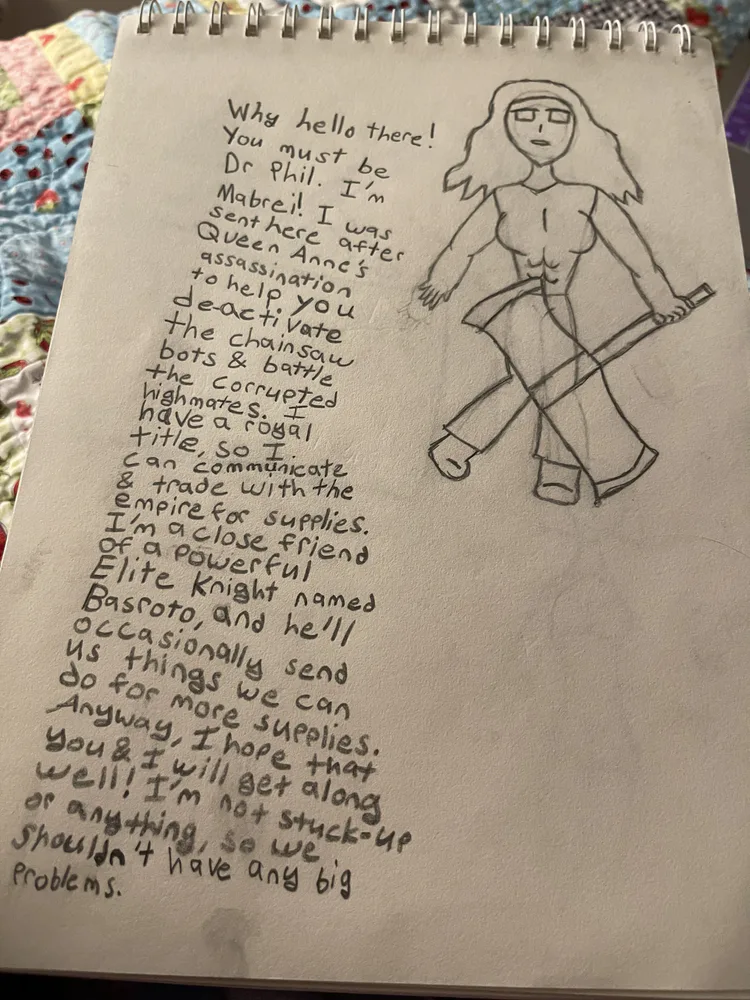 Why hello there!
You must be
Dr Phil. I'm
Mabrei! I was
sent here after
Queen Anne's
assassination
to help you
de-activate
the chainsaw
bots & battle
the corrupted
highmates. I
have a royal
title, so I
can communicate
& trade with the
empire for supplies.
I'm a close friend
of a powerful
Elite Knight named
Basroto, and he'll
occasionally send
us things we can
do for more supplies.
Anyway, I hope that
you & I will get along
well! I'm not stuck-up
or anything, so we
shouldn't have any big
problems.